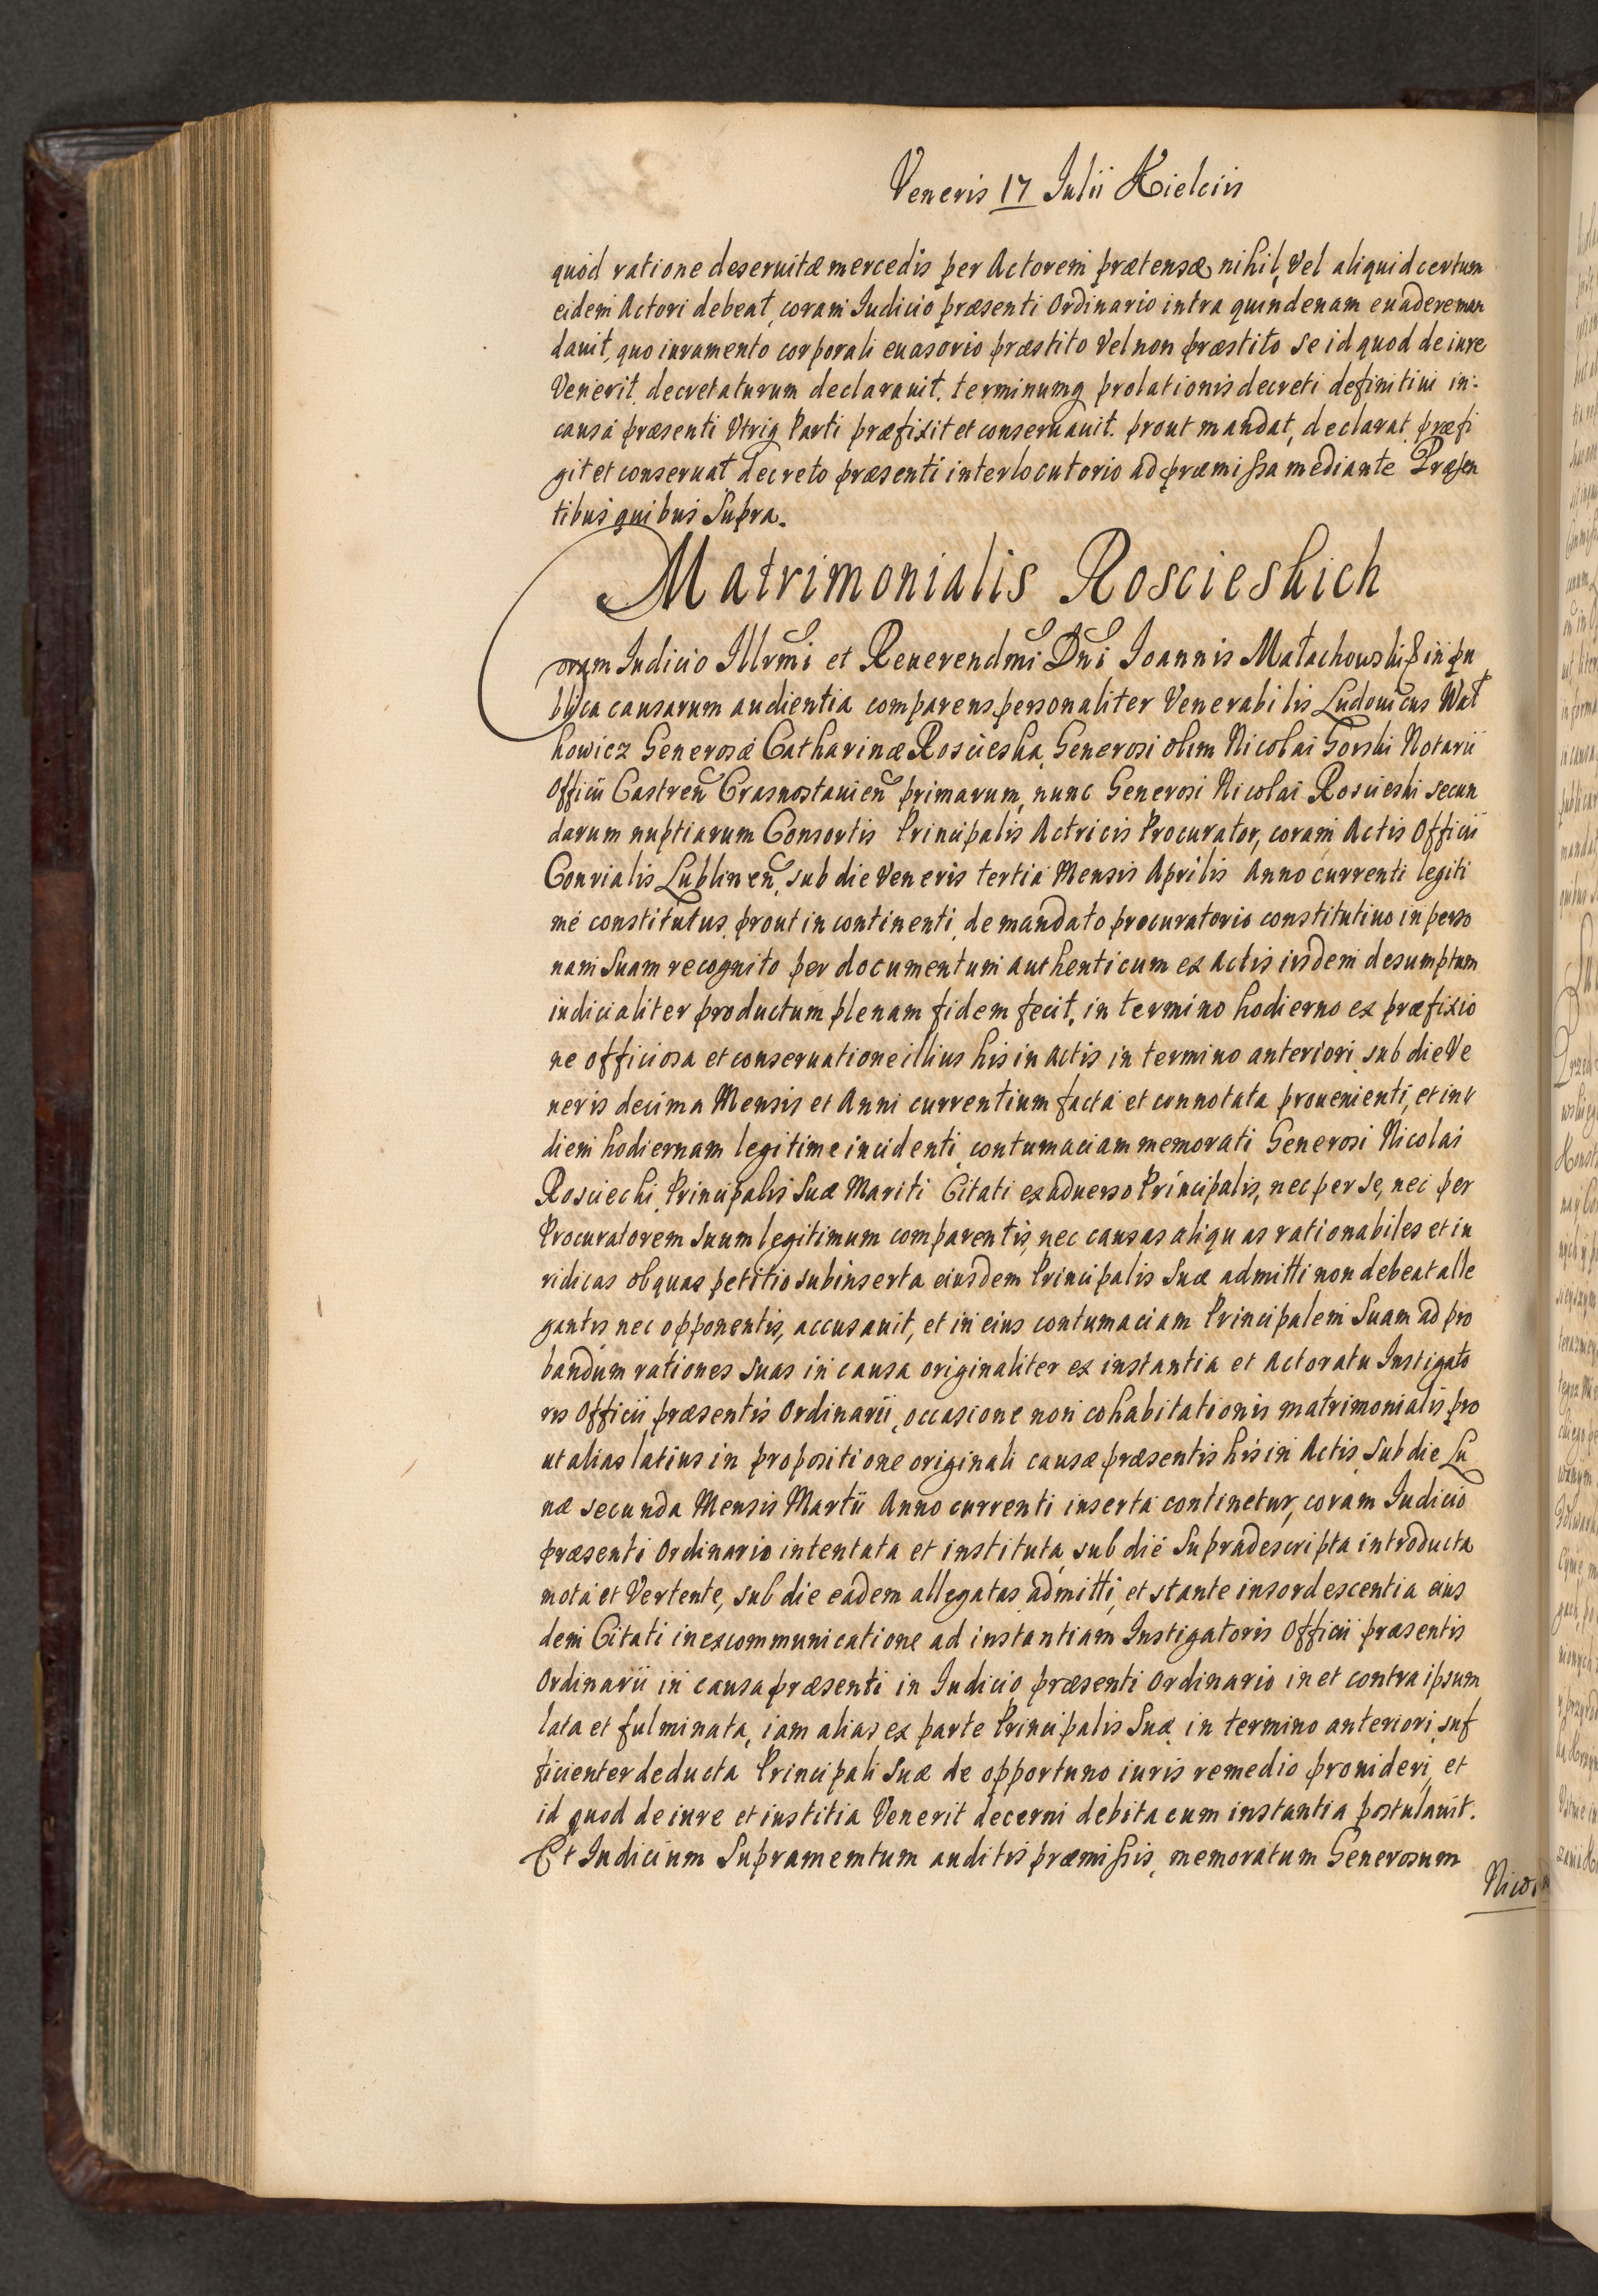 Veneris 17 Iulii Kielciis
quód ratione deseruitæ mercedis per Actorem prætensæ, nihil, Vel aliquid certum
eidem Actori debeat, coram Iudicio præsenti Ordinario intra quindenam euadere man
dauit, quo iuramento corporali euasorio præstito Vel non præstito se id quod de iure
Venerit decretaturum declarauit. terminumq prolationis decreti definitiui in
causá præsenti Vtriq Parti præfixit et conseruauit. prout mandat, declarat præfi
git et conseruat decreto præsenti interlocutorio ad præmissa mediante Præsen
tibus quibus Supra.
Matrimonialis Roscieskich
Coram Iudicio Illrmi et Reuerendmi Dni Ioannis Małachowski in pu
blica causarum audientia comparens personaliter Venerabilis Ludouicus Wał
kowicz Generosæ Catharinæ Roscieska, Generosi olim Nicolai Gorski Notarii
Officii Castren Crasnostauien primarum, nunc Generosi Nicolai Roscieski secun
darum nuptiarum Consortis Principalis Actricis Procurator, coram Actis Officii
Consialis Lublinen, sub die Veneris tertiá Mensis Aprilis Anno currenti legiti
mé constitutus, prout in continenti, de mandato procuratorio constitutiuo in perso
nam Suam recognito per documentum authenticum ex Actis iisdem desumptum
iudicialiter productum plenam fidem fecit, in termino hodierno ex præfixio
ne officiosa et conseruatione illius his in Actis in termino anteriori sub die Ve
neris decima Mensis et Anni currentium factá et connotata prouenienti, et in
diem hodiernam legitime incidenti contumaciam memorati Generosi Nicolai
Rosciechi, Principalis Suæ Mariti Citati ex aduerso Principalis, nec per se, nec per
Procuratorem Suum legitimum comparentis, nec causas aliquas rationabiles et iu
ridicas ob quas petitio subinserta eiusdem Principalis Suæ admitti non debeat alle
gantis nec opponentis, accusauit, et in eius contumaciam Principalem Suam ad pro
bandum rationes suas in causa originaliter ex instantia et Actoratu Instigato
ris Officii præsentis Ordinarii, occasione non cohabitationis matrimonialis, pro
ut alias latius in propositione originali causæ præsentis his in Actis, sub die Lu
næ secunda Mensis Martii Anno currenti inserta continetur, coram Iudicio
præsenti Ordinario intentata et instituta, sub die Supradescripta introducta
motá et Vertente, sub die eadem allegatas admitti, et stante insordescentia eius
dem Citati in excommunicatione ad instantiam Instigatoris Officii præsentis
Ordinarii in causa præsenti in Iudicio præsenti Ordinario in et contra ipsum
lata et fulminata, iam alias ex parte Principalis Suæ in termino anteriori, suf
ficienter deducta Principali Suæ de opportuno iuris remedio prouideri, et
id quod de iure et iustitia Venerit decerni debita cum instantia postulauit.
Et Iudicium Supramemtum auditis præmissis, memoratum Generosum